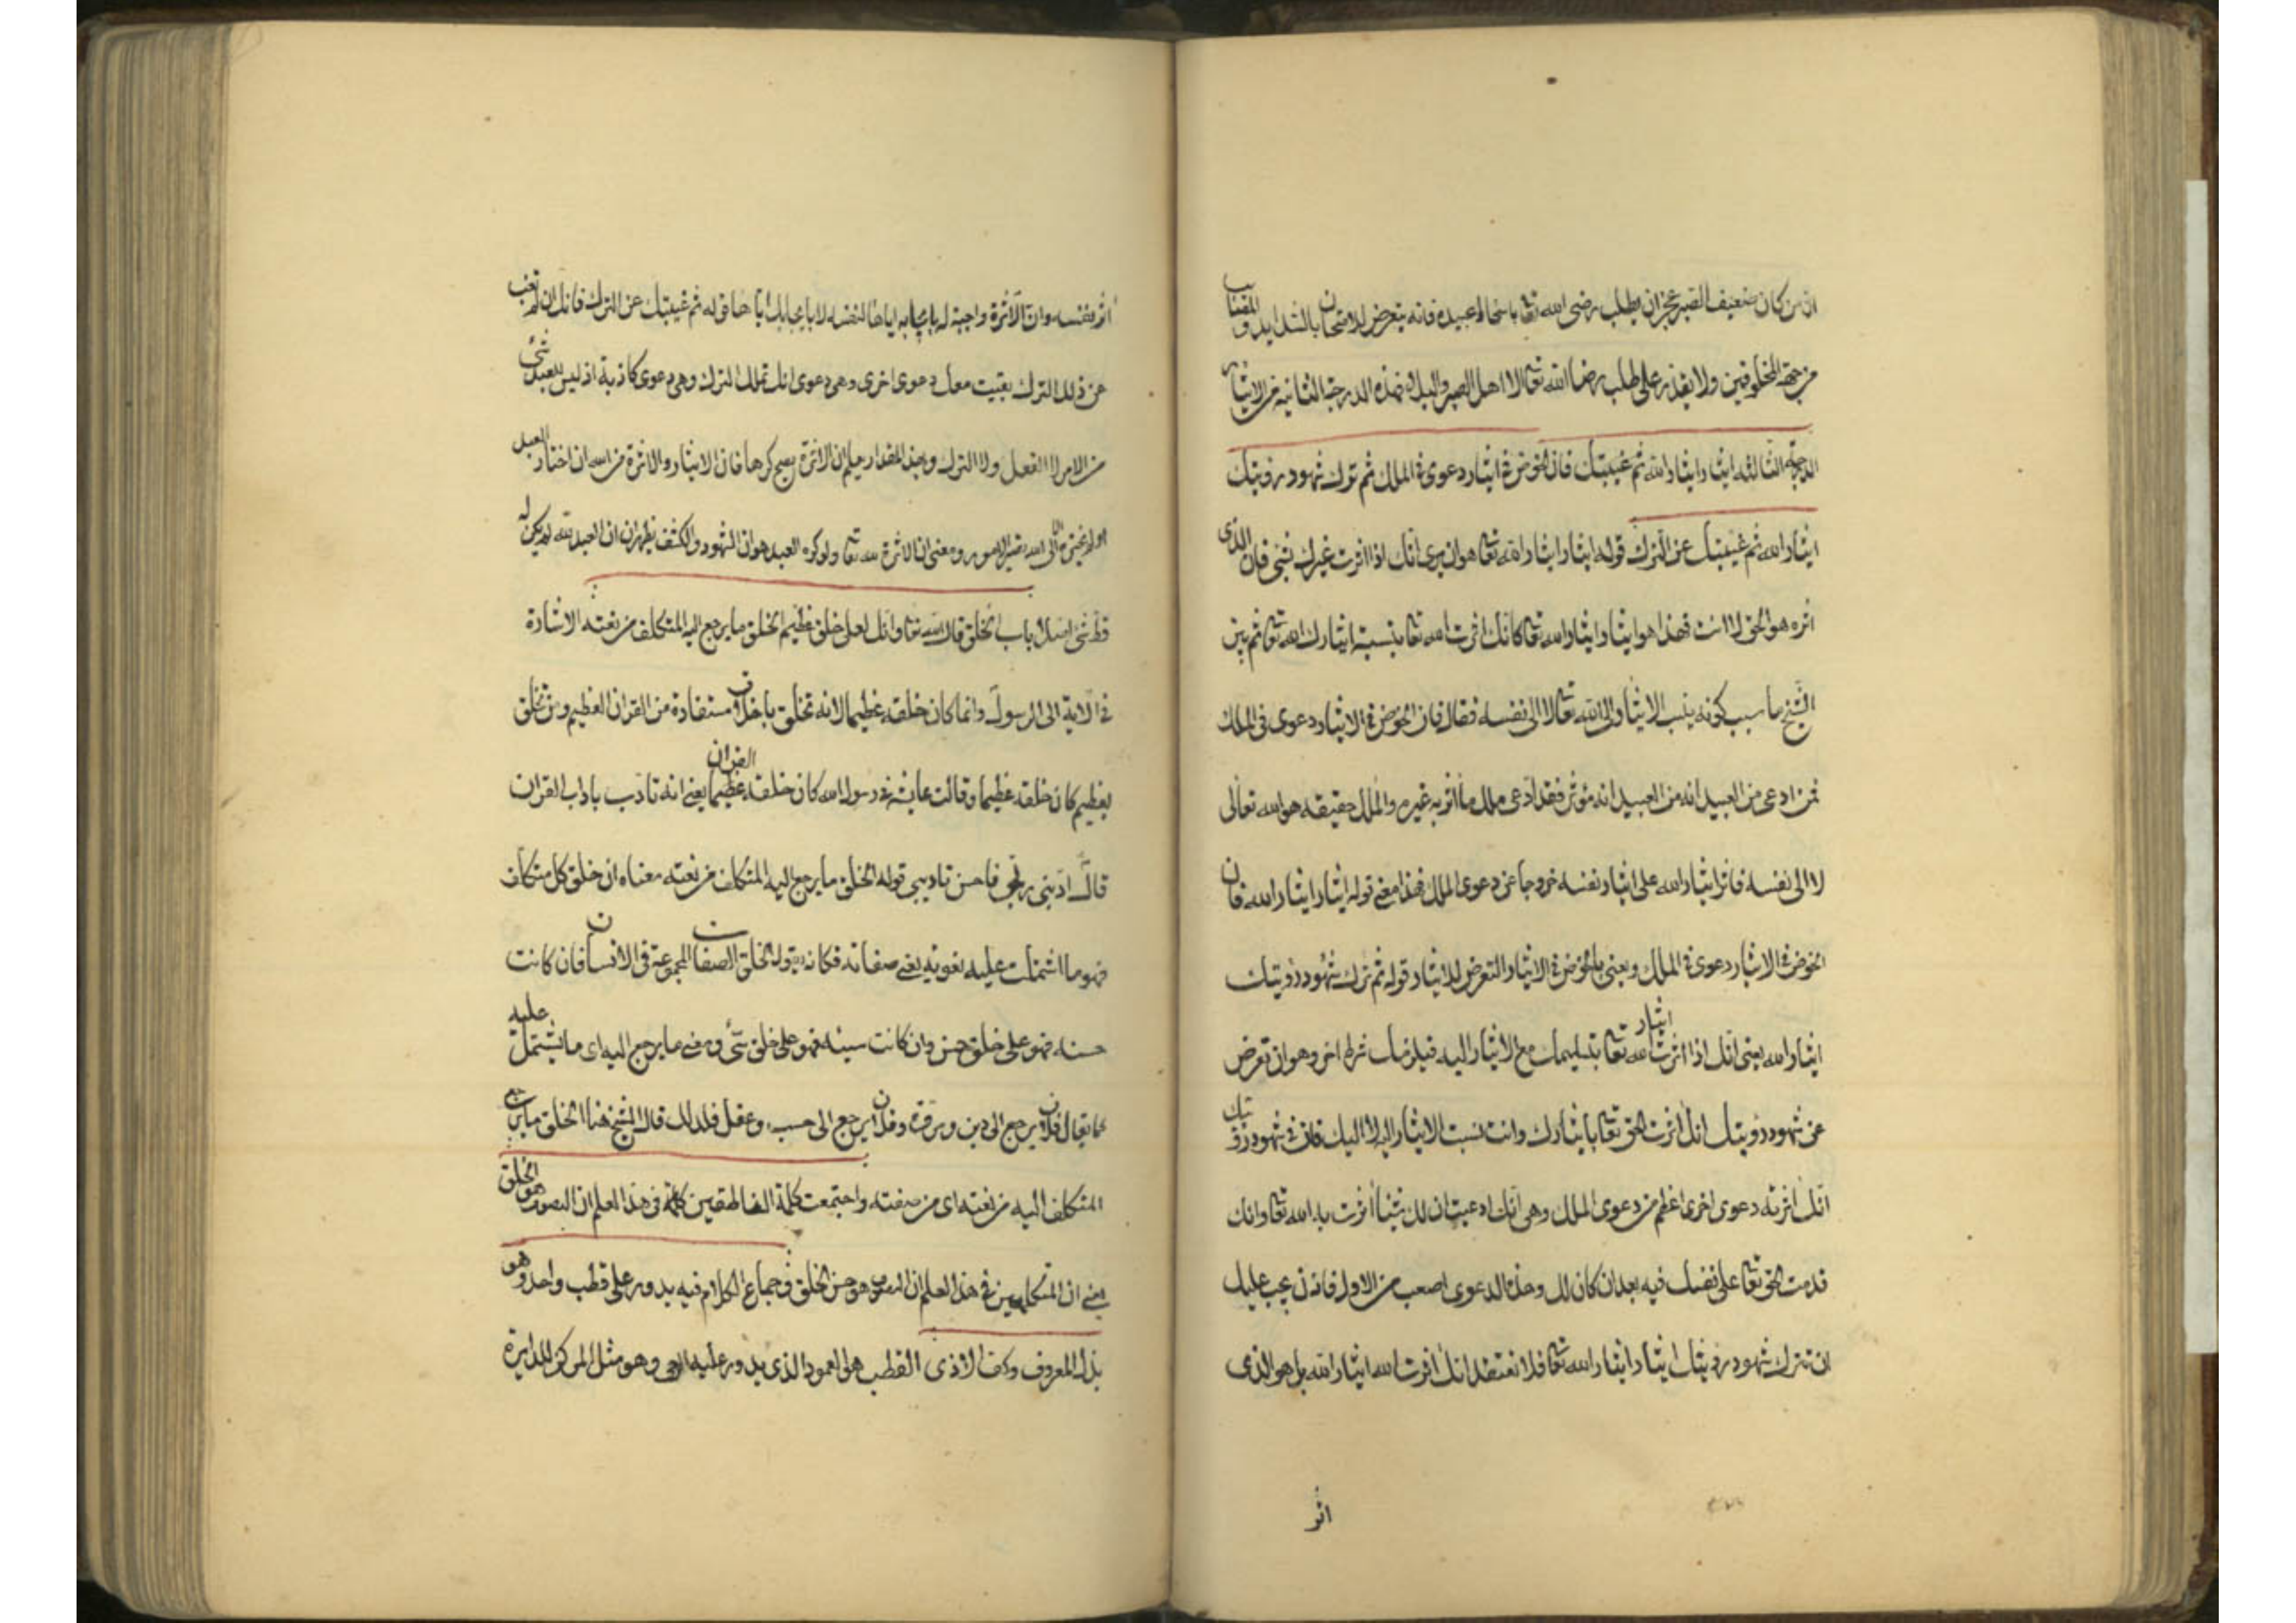 ان من كان ضعيف الصبر عجز ان يطلب رضى الله تعا باسخاط عبيده فانه يتعرض للامتحان بالشدايد و المقتات
من جهة المخلوقين ولا يقدر على طلب رضا الله تعا الا اهل الصبر والبلاء فهذه الدرجة الثانية من الايثار
الدرجة الثالثه ايثار ايثار الله ثم غيبتك فان الخوض في ايثار دعوى في الملك ثم ترك شهود رؤيتك
ايثار الله ثم غيبتك عن الترك قوله ايثار ايثار الله تعا هو ان يرى انك اذا اثرت غيرك بشئ فان الذى
اثره هو الحق لا انت فهذا هو ايثار ايثار الله تعا كانك اثرت الله تعا بنسبة ايثارك الله تعا ثم بين
الشيخ ما سبب كونه ينسب الايثار الى الله تعا لا الى نفسه فقال فان الخوض في الايثار دعوى فى الملك
فمن ادعى من العبيد انه من العبيد انه موثر فقد ادعى ملك ما اثر به غيره والملك حقيقه هو الله تعالى
لا الى نفسه فاثر ايثار الله على ايثار نفسه خروجا عن دعوى الملك فهذا معنى قوله ايثار ايثار الله فان
الخوض في الايثار دعوى في الملك ويعنى بالخوض في الايثار التعرض للايثار قوله ثم ترك شهود رؤيتك
ايثار الله يعنى انك اذا اثرت ايثار الله تعا بتسليمك مع الايثار اليه فيلزمك شرط اخر وهو ان تعرض
عن شهود رؤيتك انك اثرت الحق تعا بايثارك وانت نسبت الايثار اليه لا اليك فان في شهود رؤيتك
انك اثرته دعوى اخرى اعظم من دعوى الملك وهى انك ادعيت ان لك شيئا اثرت به الله تعا وانك
قدمت الحق تعا على نفسك فيه بعد ان كان لك وهذه الدعوى اصعب من الاول فاذن يجب عليك
ان تترك شهود رؤيتك ايثار ايثار الله تعا فلا تعتقد انك اثرت الله ايثار الله بل هو الذى
اثر
اثر نفسه وان الاثرة واجبة له بايجابه اياها لنفسه لا بايجابك اياها قوله ثم غيبتك عن الترك فانك ان لم تغب
عن ذلك الترك بقيت معك دعوى اخرى وهى دعوى انك تملك الترك وهى دعوى كاذبة اذ ليس للعبد شئ
من الامر لا الفعل ولا الترك وبهذا المقدار يعلم ان الاثرة يصح كرها فان الايثار والاثرة من الله ان اختار العبد
او لم يختره الا الى الله تصير الامور ومعنى ان الاثرة لله تعا ولو كره العبد هو ان الشهود والكشف يظهران ان العبد لله لم يكن له
قط شئ اصلا باب الخلق قال الله تعا وانك لعلى خلق عظيم الخلق ما يرجع اليه المتكلف من نعته الاشارة
في الاية الى الرسول وانما كان خلقه عظيما لانه تخلق باخلاق مستفادة من القران العظيم ومن تخلق
بعظيم كان خلقه عظيما وقالت عايشه في رسول الله كان خلقه القران عظيما يعنى انه تادب باداب القران
قال ادبنى ربى فاحسن تاديبى قوله الخلق ما يرجع اليه المتكلف من نعته معناه ان خلق كل متكلف
فهو ما اشتملت عليه نعوته يعنى صفاته فكانه يقول الخلق الصفات المجموعة فى الانسان فان كانت
حسنه فهو على خلق حسن وان كانت سيئه فهو على خلق سئ ومعنى ما يرجع اليه اى ما يشتمل عليه
كما يقال فلان يرجع الى دين ومروة وفلان يرجع الى حسب وعقل فلذلك قال الشيخ هنا الخلق ما يرجع
المتكلف اليه من نعته اى من صفته واجتمعت كلمة الناطقين في هذا العلم ان التصوف هو الخلق
يعنى ان المتكلمين في هذا العلم ان التصوف هو حسن الخلق وجماع الكلام فيه يدور على قطب واحد وهو
بذل المعروف وكف الاذى القطب هو العمود الذى يدور عليه الرحى وهو مثل المركز للدايرة